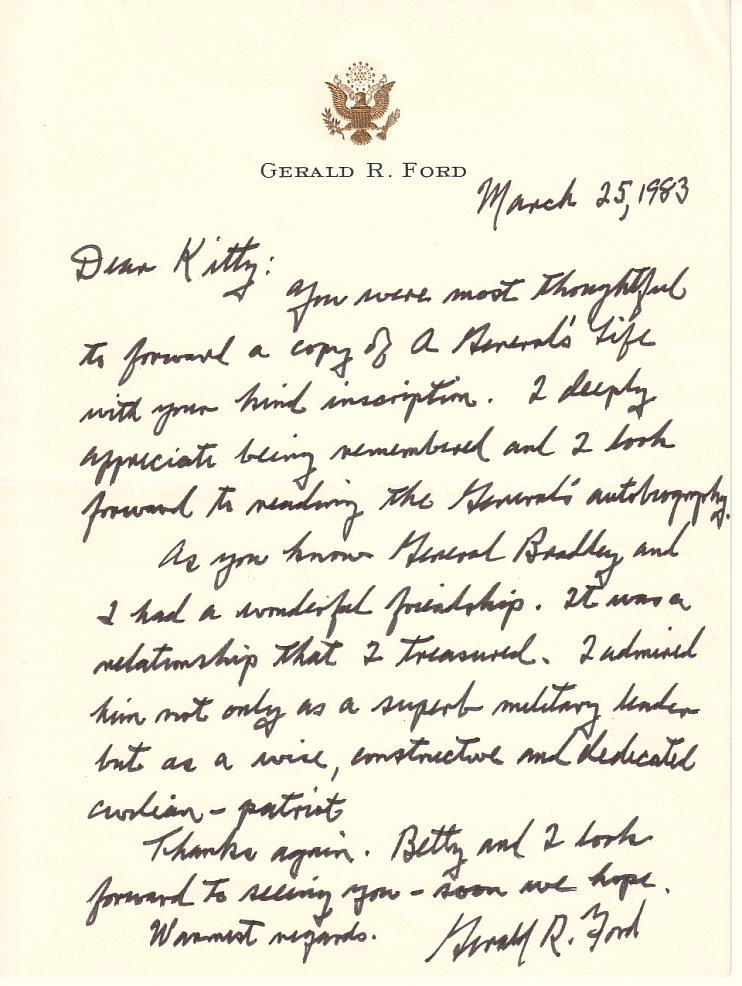 GERALD R. FORD
March 25, 1983
Dear Kitty:
You were most thoughtful
to forward a copy of A General's Life
with your kind inscription. I deeply
appreciate being remembered and I look
forward to reading the General's autobiography.
As you know General Bradley and
I had a wonderful friendship. It was a
relationship that I treasured. I admired
him not only as a superb military leader
but as a wise, constructive and dedicated
civilian - patriot
Thanks again. Betty and I look
forward to seeing you - soon we hope.
Warmest regards.
Gerald R. Ford